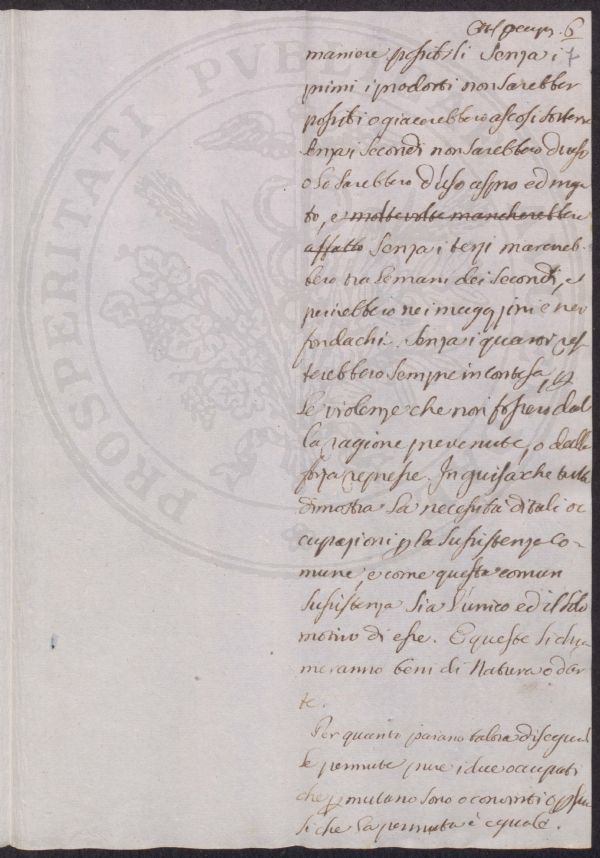 6
maniere possibili. Senza i
primi i prodotti non sarebber
possibi o giacerebbero ascosi sotterra
Senza i secondi non sarebbero d'uso
o se sarebbero d'uso aspro ed ingra
to, e molte volte mancherebbero
affatto Senza i terzi marcireb-
bero tra le mani dei secondi, e
perirebbero nei magazini e nei
fondachi. Senza i quarti res
terebbero sempre in contesa, per
le violenze che non fossero dal
la ragione prevenute, o dalla
forza represse. In guisa che tutto
dimostra la necessità di tali oc
cupazioni p la sussistenza co-
mune, e come questa comun
sussistenza sia l'unico ed il solo
motivo di esse. E queste si chia
meranno beni di Natura o d'ar
te.
Per quanto paiano talora disegual
le permute, pure i due occupati
che permutano sono o convinti o persua
si che la permuta è eguale.
PROSPERITATI PVBLICAE